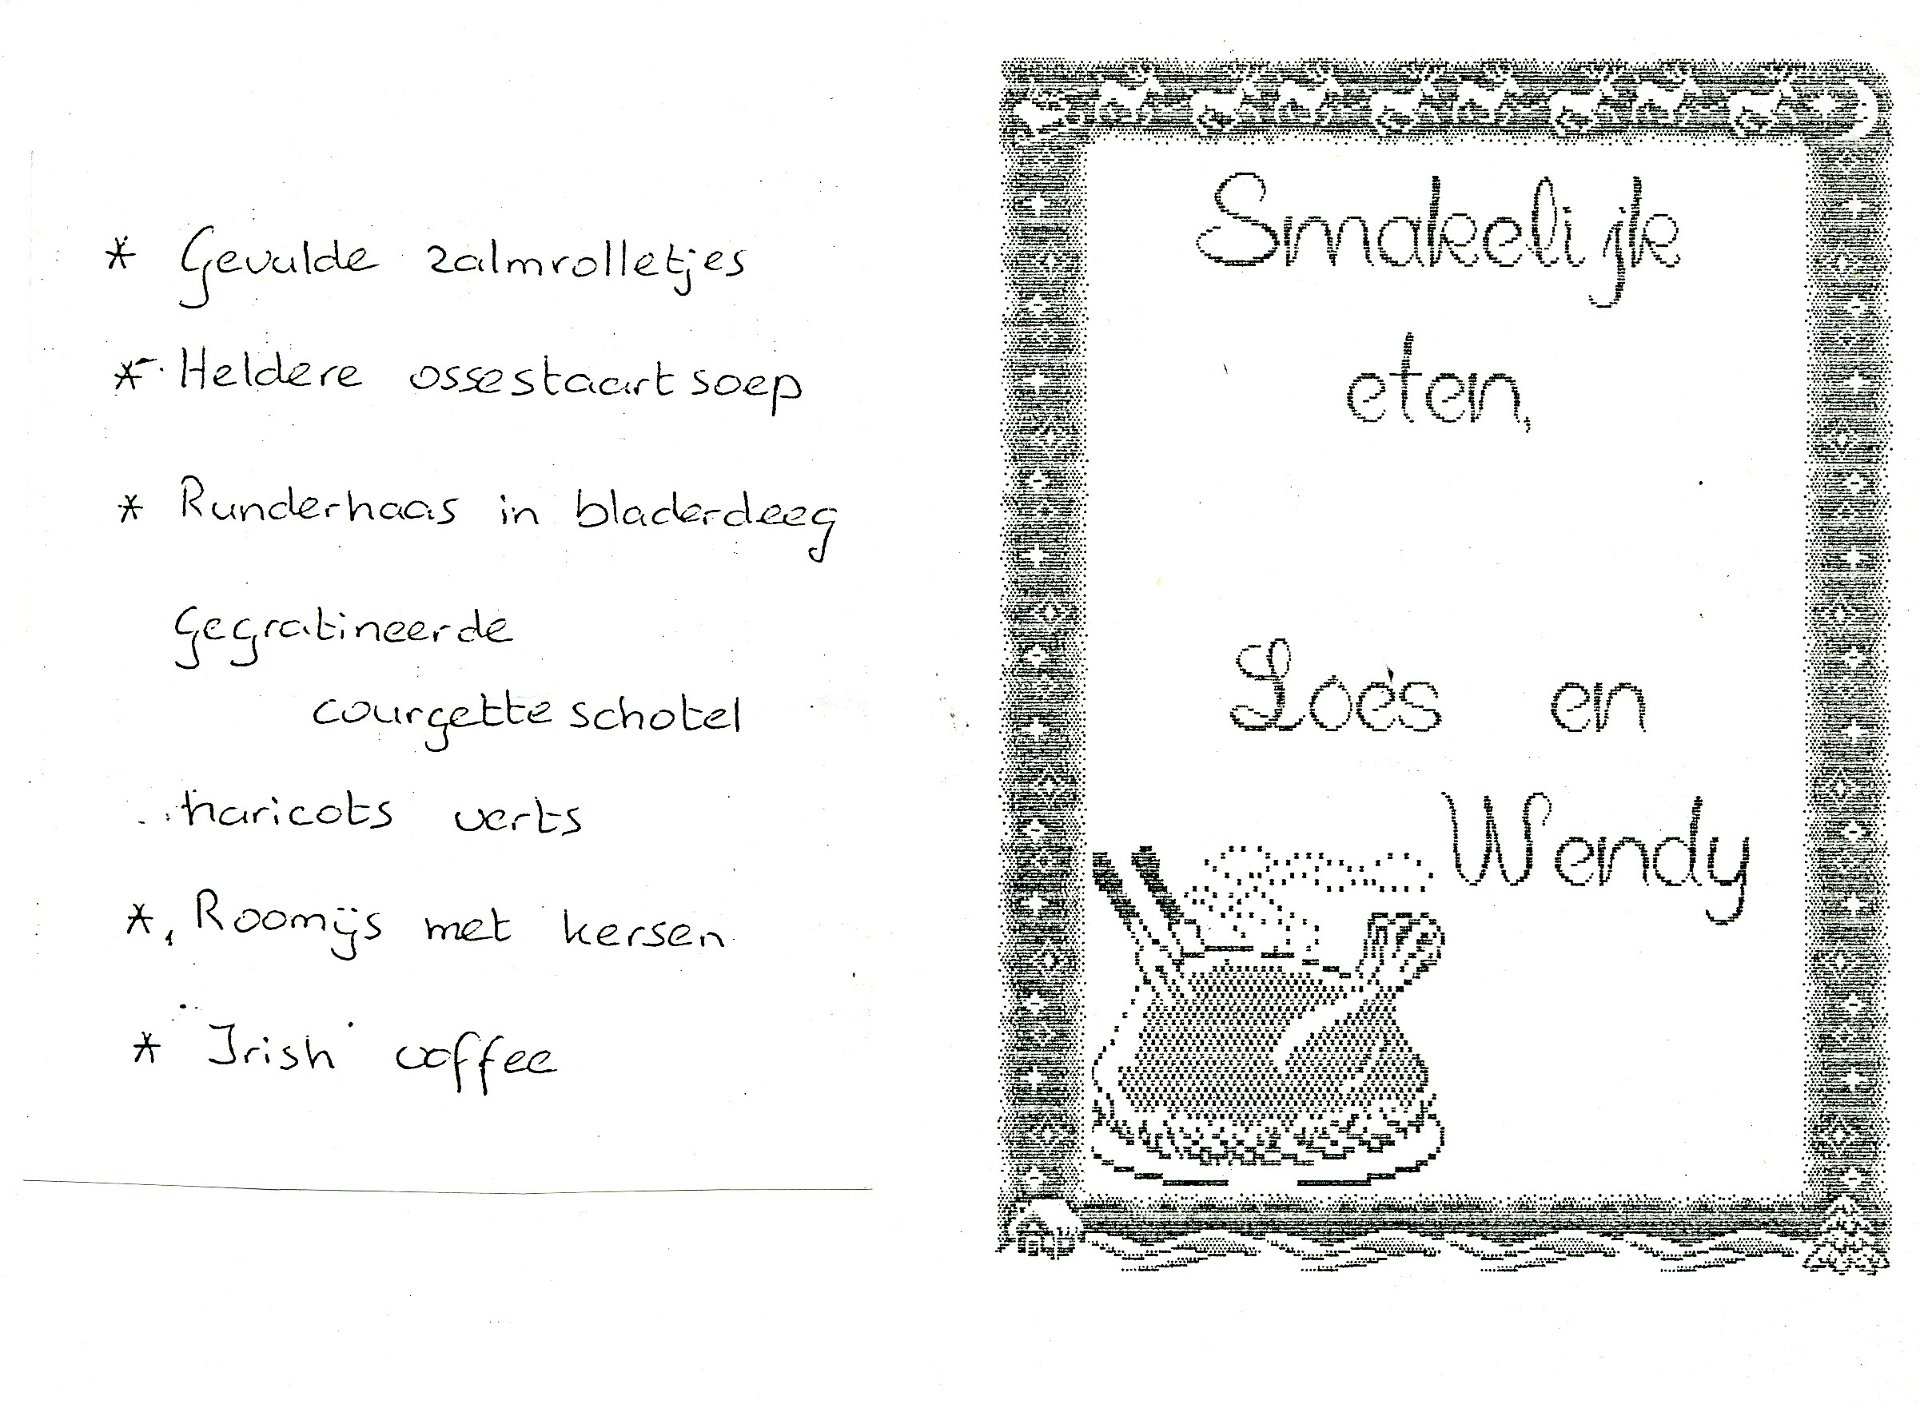 * Gevulde zalmrolletjes
* Heldere ossestaartsoep
* Runderhaas in bladerdeeg
Gegratineerde
courgetteschotel
haricots verts
* Roomijs met kersen
* Irish coffee
Smakelijk
eten,
Loes en
Wendy